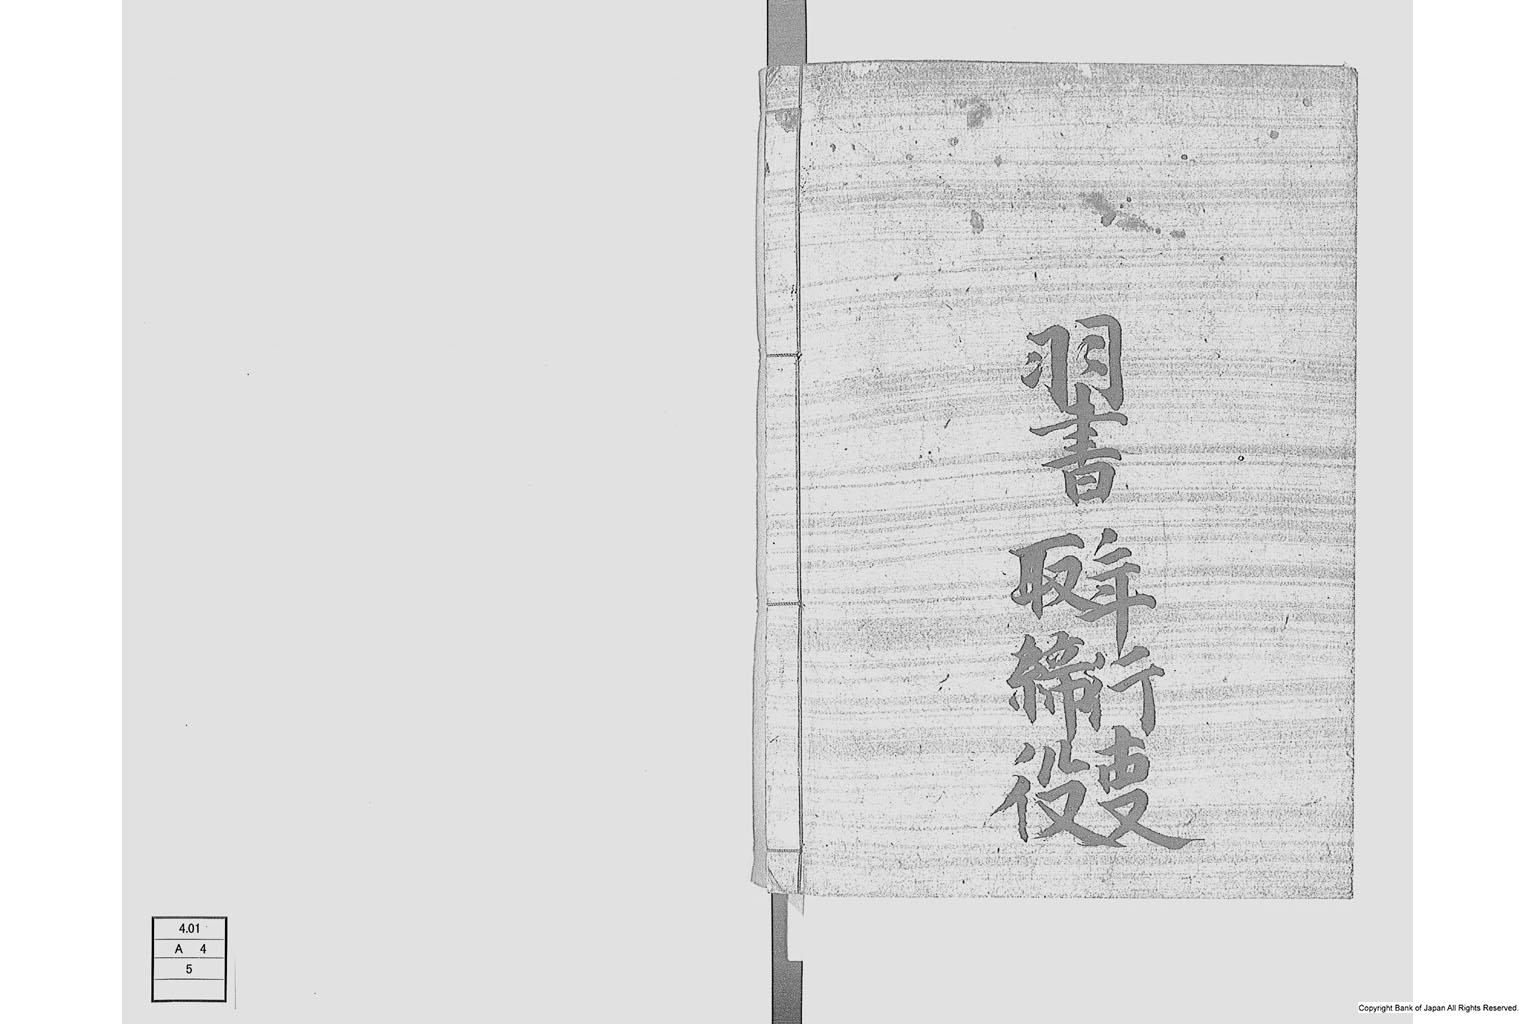 羽書
年行叓
取締役
4.01
A 4
5
Copyright Bank of Japan All Rights Reserved.